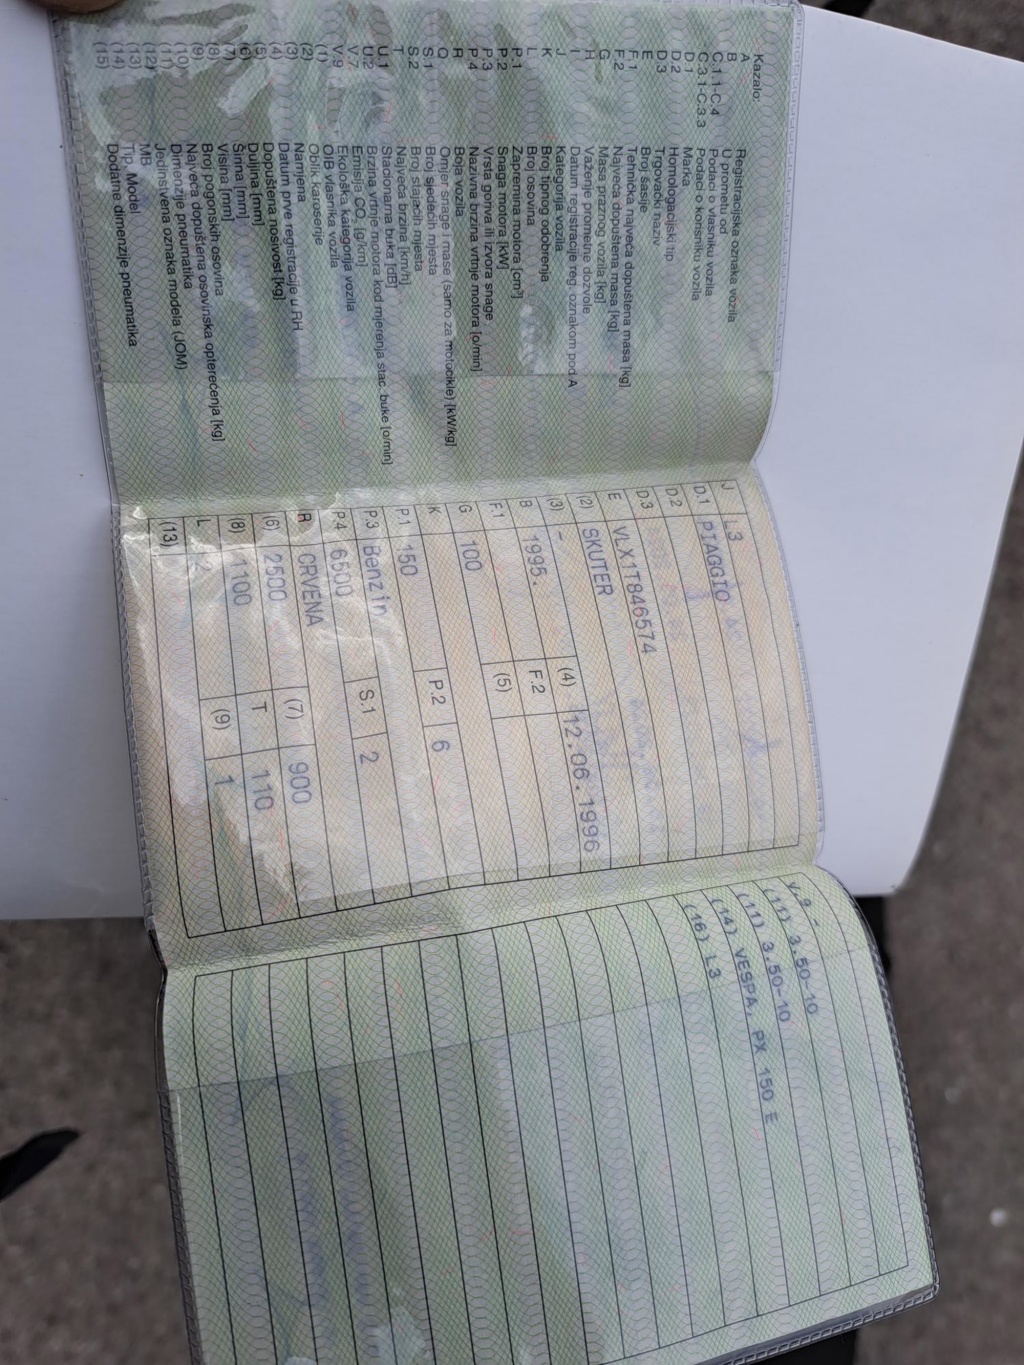 Kazalo:
A Registracijska oznaka vozila
B U prometu od
C.1.1-C.4 Podaci o vlasniku vozila
C.3.1-C.3.3 Podaci o korisniku vozila
D.1 Marka
D.2 Homologacijski tip
D.3 Trgovački naziv
E Broj šasije
F.1 Tehnička najveća dopuštena masa [kg]
F.2 Najveća dopuštena masa [kg]
G Masa praznog vozila [kg]
H Važenje prometne dozvole
I Datum registracije reg. oznakom pod A
J Kategorija vozila
K Broj tipnog odobrenja
L Broj osovina
P.1 Zapremina motora [cm³]
P.2 Snaga motora [kW]
P.3 Vrsta goriva ili izvora snage
P.4 Nazivna brzina vrtnje motora [o/min]
R Boja vozila
Q Omjer snage i mase (samo za motocikle) [kW/kg]
S.1 Broj sjedećih mjesta
S.2 Broj stajaćih mjesta
T Najveća brzina [km/h]
U.1 Stacionarna buka [dB]
U.2 Brzina vrtnje motora kod mjerenja stac. buke [o/min]
V.7 Emisija CO₂ [g/km]
V.9 Ekološka kategorija vozila
(1) OIB vlasnika vozila
(2) Oblik karoserije
(3) Namjena
(4) Datum prve registracije u RH
(5) Dopuštena nosivost [kg]
(6) Duljina [mm]
(7) Širina [mm]
(8) Visina [mm]
(9) Broj pogonskih osovina
(10) Najveća dopuštena osovinska opterećenja [kg]
(11) Dimenzije pneumatika
(12) Jedinstvena oznaka modela (JOM)
(13) MB
(14) Tip, Model
(15) Dodatne dimenzije pneumatika
J L3
D.1 PIAGGIO
D.2
D.3
E VLX1T846574
(2) SKUTER
(3) - (4) 12.06.1996
B 1995. F.2
F.1 (5)
G 100
K P.2 6
P.1 150
P.3 Benzin S.1 2
P.4 6500
R CRVENA (7) 900
(6) 2500 T 110
(8) 1100 (9) 1
L 2
(13)
V.9 -
(11) 3.50-10
(11) 3.50-10
(14) VESPA, PX 150 E
(16) L3